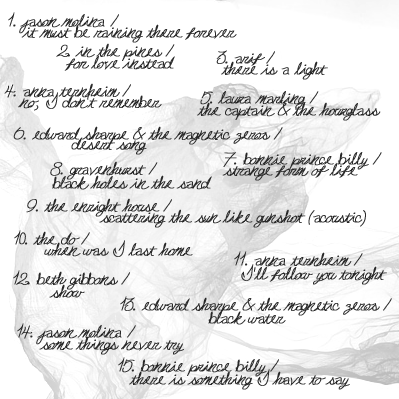 1. jason molina /
it must be raining there forever
2. in the pines /
for love instead
3. arif /
there is a light
4. anna ternheim /
no, I don't remember
5. laura marling /
the captain & the hourglass
6. edward sharpe & the magnetic zeros /
desert song
7. bonnie prince billy /
strange form of life
8. gravenhurst /
black holes in the sand
9. the enright house /
scattering the sun like gunshot (acoustic)
10. the do /
when was I last home
11. anna ternheim /
I'll follow you tonight
12. beth gibbons /
show
13. edward sharpe & the magnetic zeros /
black water
14. jason molina /
some things never try
15. bonnie prince billy /
there is something I have to say